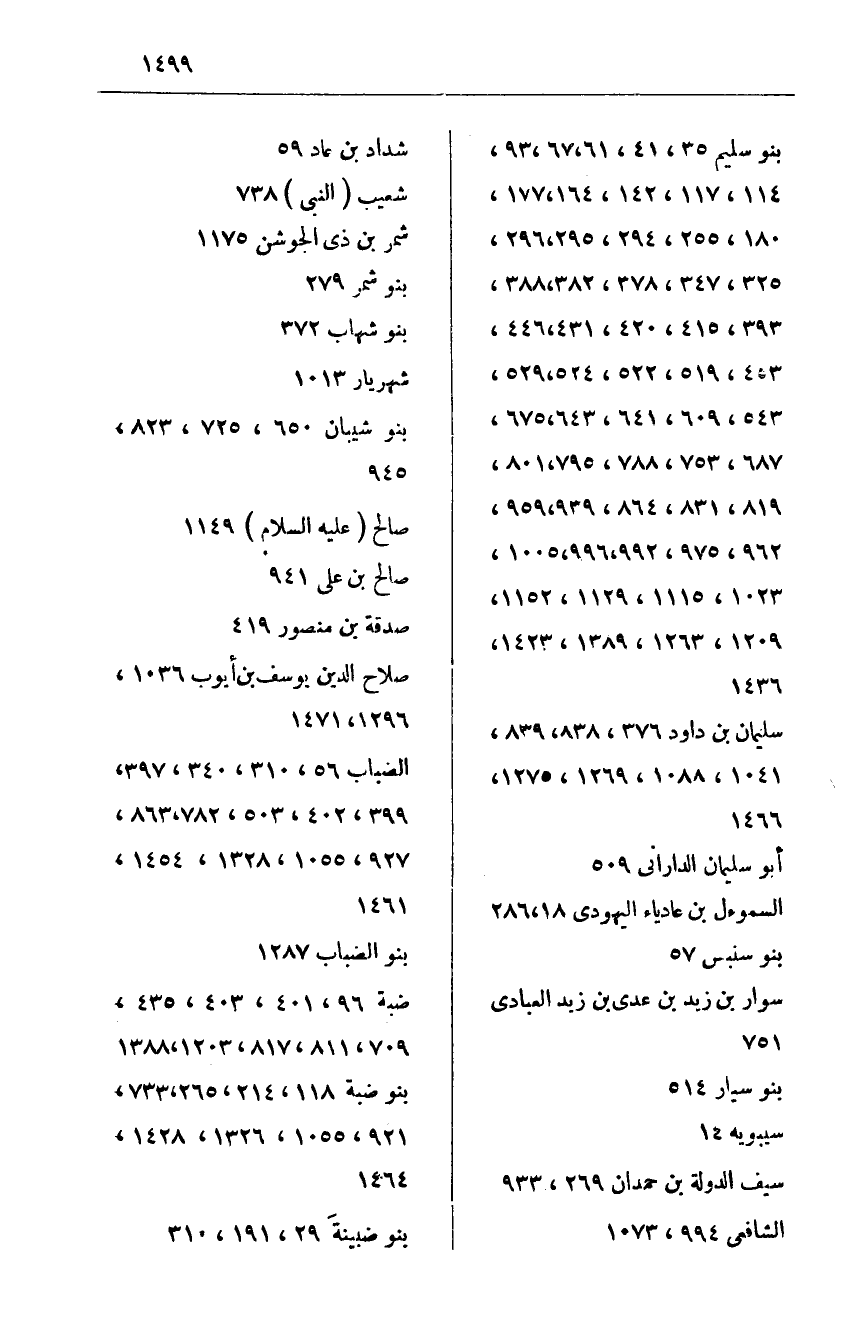 ١٤٩٩
بنو سليم ٣٥ ، ٤١ ، ٦٧،٦١ ، ٩٣ ،
١١٤ ، ١١٧ ، ١٤٢ ، ١٧٧،١٦٤ ،
١٨٠ ، ٢٥٥ ، ٢٩٤ ، ٢٩٦،٢٩٥ ،
٣٢٥ ، ٣٤٧ ، ٣٧٨ ، ٣٨٨،٣٨٢ ،
٣٩٣ ، ٤١٥ ، ٤٢٠ ، ٤٤٦،٤٣١ ،
، ٥١٩ ، ٥٢٢ ، ٥٢٩،٥٢٤ ،
٥٤٣ ، ٦٠٩ ، ٦٤١ ، ٦٧٥،٦٤٣ ،
٦٨٧ ، ٧٥٣ ، ٧٨٨ ، ٨٠١،٧٩٥ ،
٨١٩ ، ٨٣١ ، ٨٦٤ ، ٩٥٩،٩٣٩ ،
٩٦٢ ، ٩٧٥ ، ١٠٠٥،٩٩٦،٩٩٢ ،
١٠٢٣ ، ١١١٥ ، ١١٢٩ ، ١١٥٢،
١٢٠٩ ، ١٢٦٣ ، ١٣٨٩ ، ١٤٢٣،
١٤٣٦
سليمان بن داود ٣٧٦ ، ٨٣٨، ٨٣٩ ،
١٠٤١ ، ١٠٨٨ ، ١٢٦٩ ، ١٢٧٥،
١٤٦٦
أبو سليمان الدارانى ٥٠٩
السموءل بن عادياء اليهودى ٢٨٦،١٨
بنو سنبس ٥٧
سوار بن زيد بن عدى بن زيد العبادى
٧٥١
بنو سيار ٥١٤
سيبويه ١٤
سيف الدولة بن حمدان ٢٦٩ ، ٩٣٣
الشافعى ٩٩٤ ، ١٠٧٣
شداد بن عاد ٥٩
شعيب ( النبى ) ٧٣٨
شمر بن ذى الجوشن ١١٧٥
بنو شمر ٢٧٩
بنو شهاب ٣٧٢
شهريار ١٠١٣
بنو شيبان ٦٥٠ ، ٧٢٥ ، ٨٢٣ ،
٩٤٥
صالح ( عليه السلام ) ١١٤٩
صالح بن على ٩٤١
صدقة بن منصور ٤١٩
صلاح الدين يوسف بن أيوب ١٠٣٦ ،
١٢٩٦، ١٤٧١
الضباب ٥٦ ، ٣١٠ ، ٣٤٠ ، ٣٩٧،
٣٩٩ ، ٤٠٢ ، ٥٠٣ ، ٨٦٣،٧٨٢ ،
٩٢٧ ، ١٠٥٥ ، ١٣٢٨ ، ١٤٥٤ ،
١٤٦١
بنو الضباب ١٢٨٧
ضبة ٩٦ ، ٤٠١ ، ٤٠٣ ، ٤٣٥ ،
٧٠٩ ، ٨١١ ، ٨١٧ ، ١٣٨٨،١٢٠٣
بنو ضبة ١١٨ ، ٢١٤ ، ٧٣٣،٢٦٥ ،
٩٢١ ، ١٠٥٥ ، ١٣٢٦ ، ١٤٢٨ ،
١٤٦٤
بنو ضبينة ٢٩ ، ١٩١ ، ٣١٠